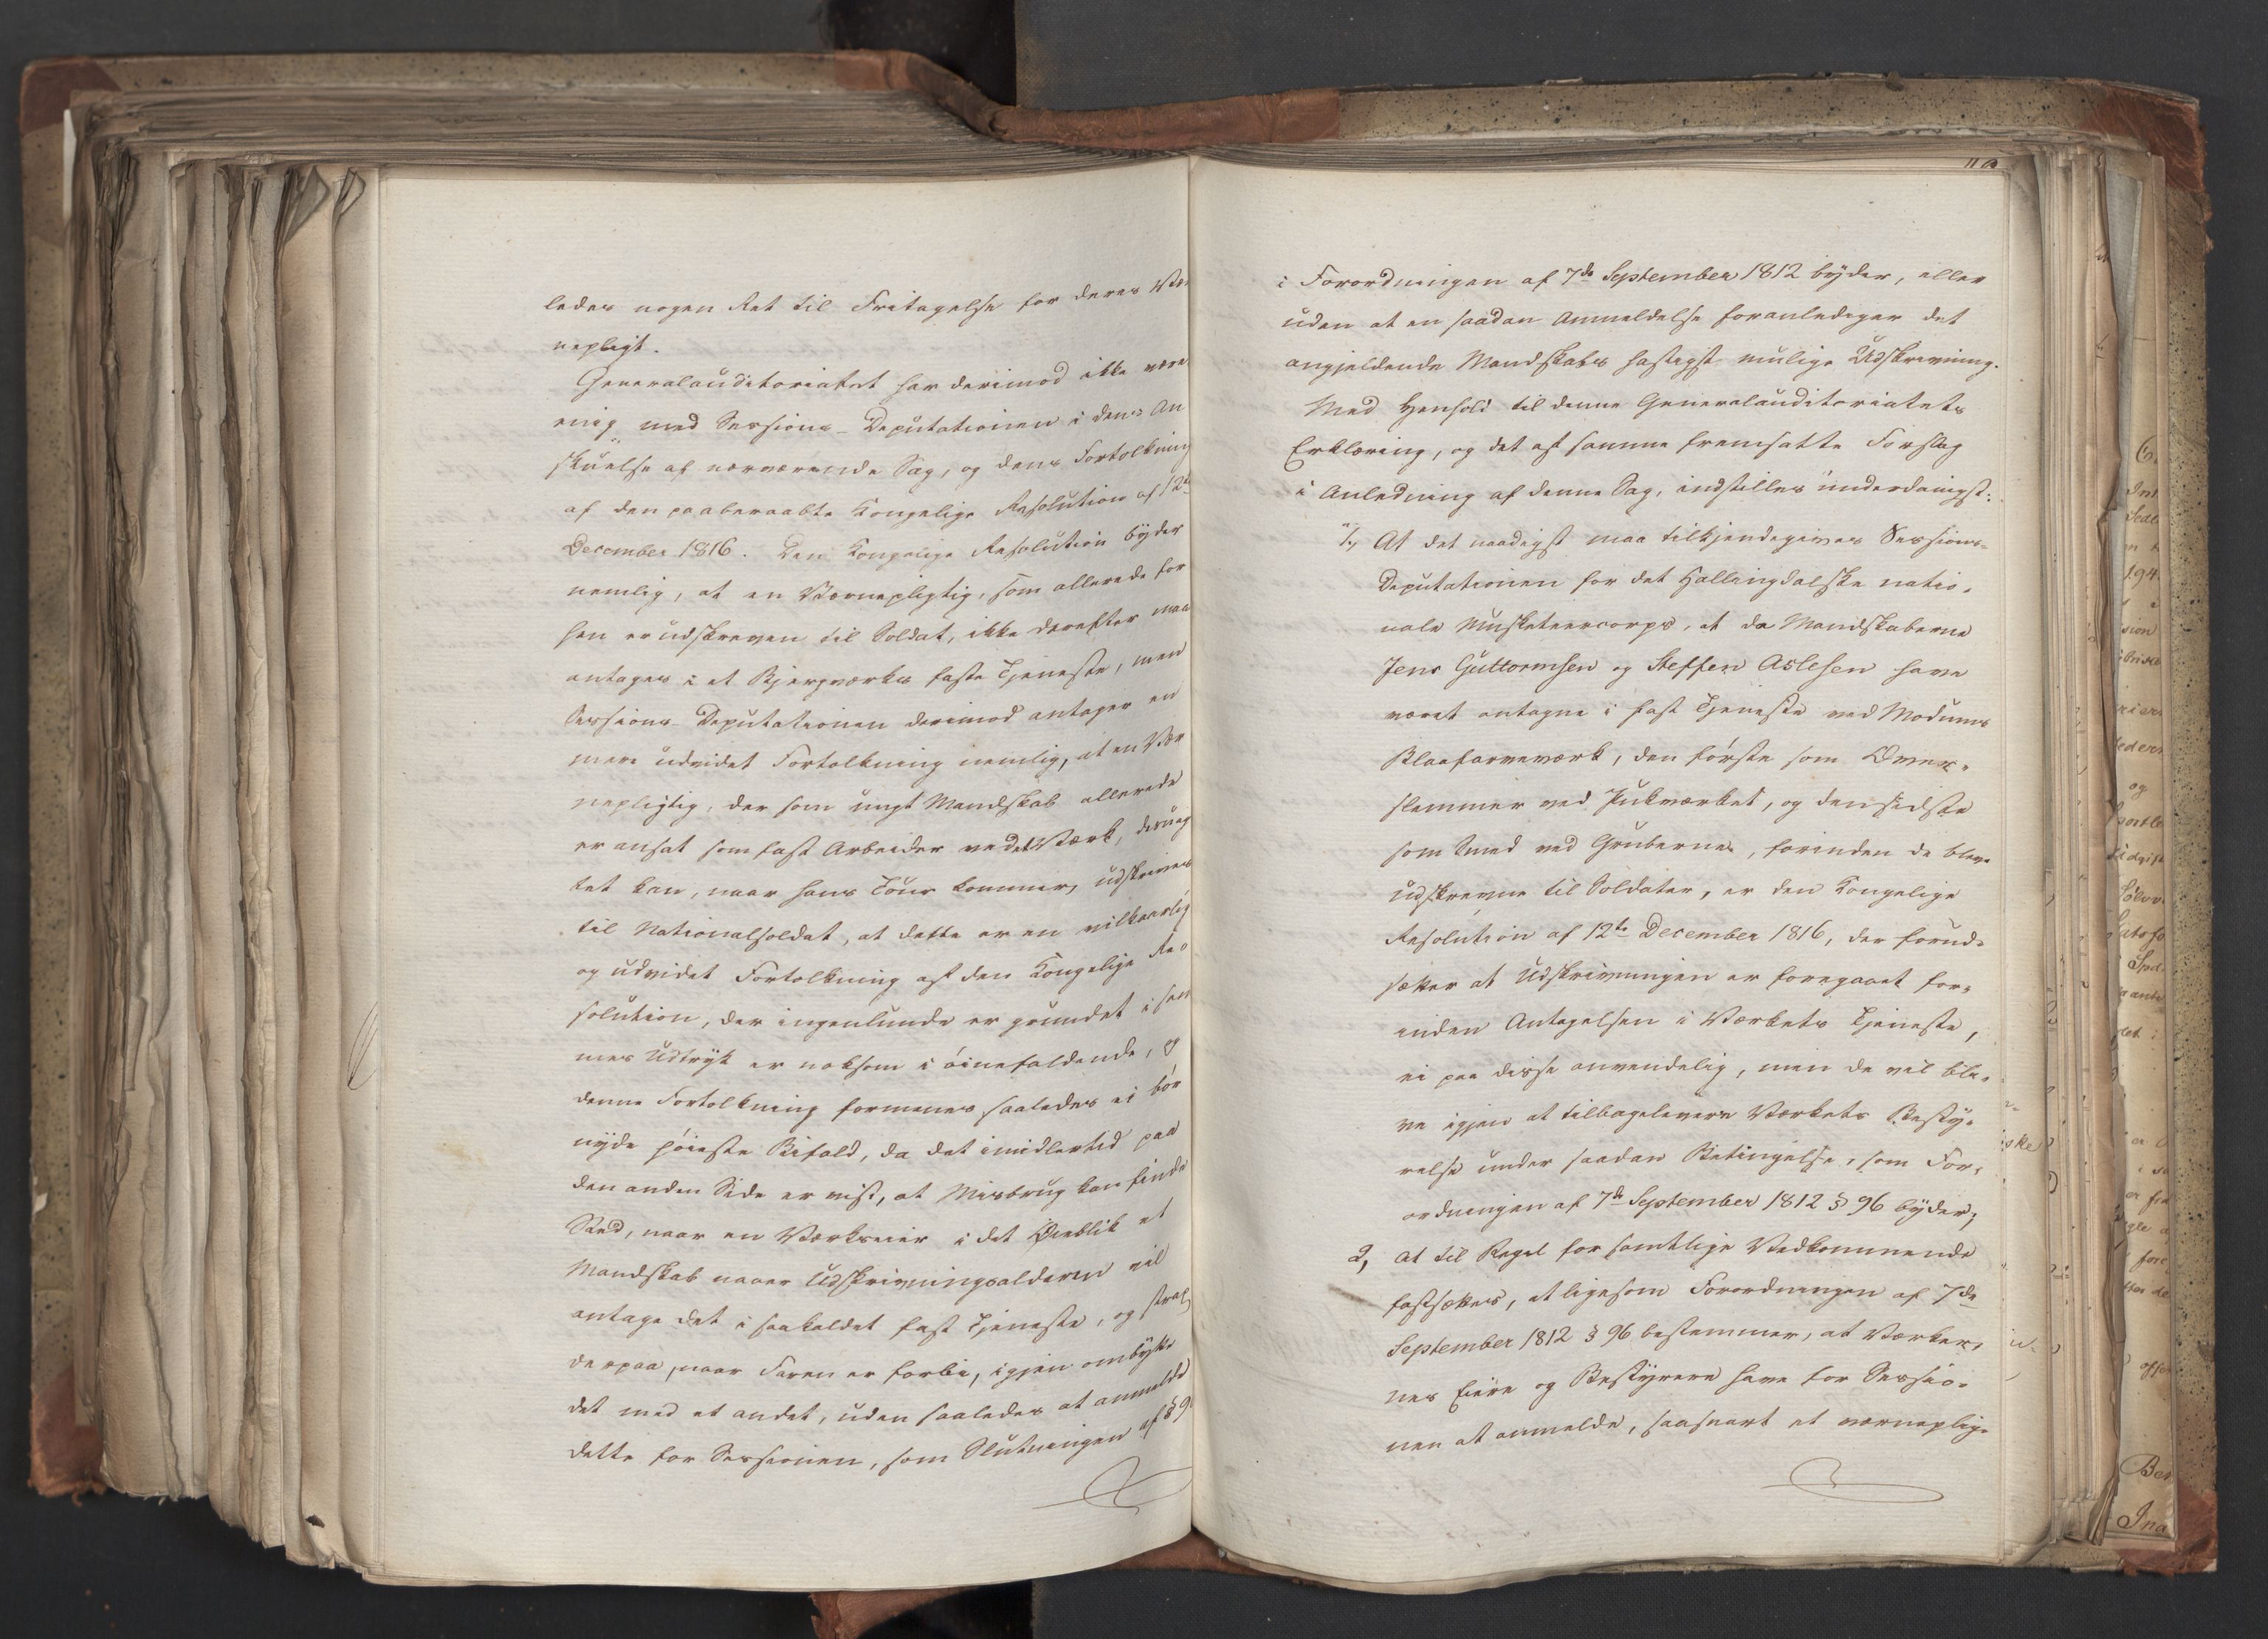 ledes nogen Ret til Fritagelse for deres Vær
nepligt.
Generalauditoriatet har derimod ikke være
enig med Sessions-Deputationen i dens An
skuelse af nærværende Sag, og dens Fortolkning
af den paaberaabte Kongelige Resolution af 12te
December 1816. Den Kongelige Resolution byder
nemlig, at en Værnepligtig, som allerede for
hen er udskreven til Soldat, ikke derefter maa
antages i et Bjergværks faste Tjeneste, men
Sessions-Deputationen derimod antager en
mere udvidet Fortolkning nemlig, at en Vær
nepligtig, der som ungt Mandskab allerede
er ansat som fast Arbeider ved et Værk, desuag
tet kan, naar hans Tour kommer, udskrives
til Nationalsoldat, at dette er en vilkaarlig
og udvidet Fortolkning af den Kongelige Re-
solution, der ingenlunde er grundet i sam
mes Udtryk er noksom i öinefaldende, og
denne Fortolkning formenes saaledes ei bör
nyde föieste Bifald, da det imidlertid paa
den anden Side er vist, at Misbrug kan finde
Sted, naar en Værkseier i det Öieblik et
Mandskab naaer Udskrivningsalderen vil
antage det i saakaldet fast Tjeneste, og strax
derpaa, naar Faren er forbi, igjen ombytte
det med et andet, uden saaledes at anmelde
dette for Sessionen, som Slutningen af § 9
i Forordningen af 7de September 1812 byder, eller
uden at en saadan Anmeldelse foranlediger det
angjeldende Mandskabs hastigst mulige Udskrivning.
Med Henhold til denne Generalauditoriatets
Erklæring, og det af samme fremsatte Forslag
i Anledning af denne Sag, indstilles underdanigst:
1, At det naadigst maa tilkjendegives Sessions-
Deputationen for det Hallingdalske natio-
nale Musketeercorps, at da Mandskaberne
Jens Guttormsen og Steffen Aslesen have
været antagne i fast Tjeneste ved Modums
Blaafarveværk, den förste som Over-
slemmer ved Pukværket, og den sidste
som Smed ved Gruberne, forinden de bleve
udskrevne til Soldater, er den Kongelige
Resolution af 12te December 1816, der forud-
sætter at Udskrivningen er foregaaet for-
inden Antagelsen i Værkets Tjeneste,
ei paa disse anvendelig, men de vil bli-
ve igjen at tilbagelevere Værkets Besty-
relse under saadan Betingelse, som For-
ordningen af 7de September 1812 § 96 byder;
2, at til Regel for samtlige Vedkommende
fastsættes, at ligesom Forordningen af 7de
September 1812 § 96 bestemmer, at Værker-
nes Eiere og Bestyrere have for Sessio-
nen at anmelde, saasnart et værneplig-